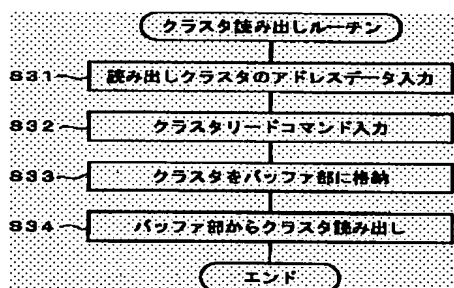 クラスタ読み出しルーチン
S31 読み出しクラスタのアドレスデータ入力
S32 クラスタリードコマンド入力
S33 クラスタをバッファ部に格納
S34 バッファ部からクラスタ読み出し
エンド